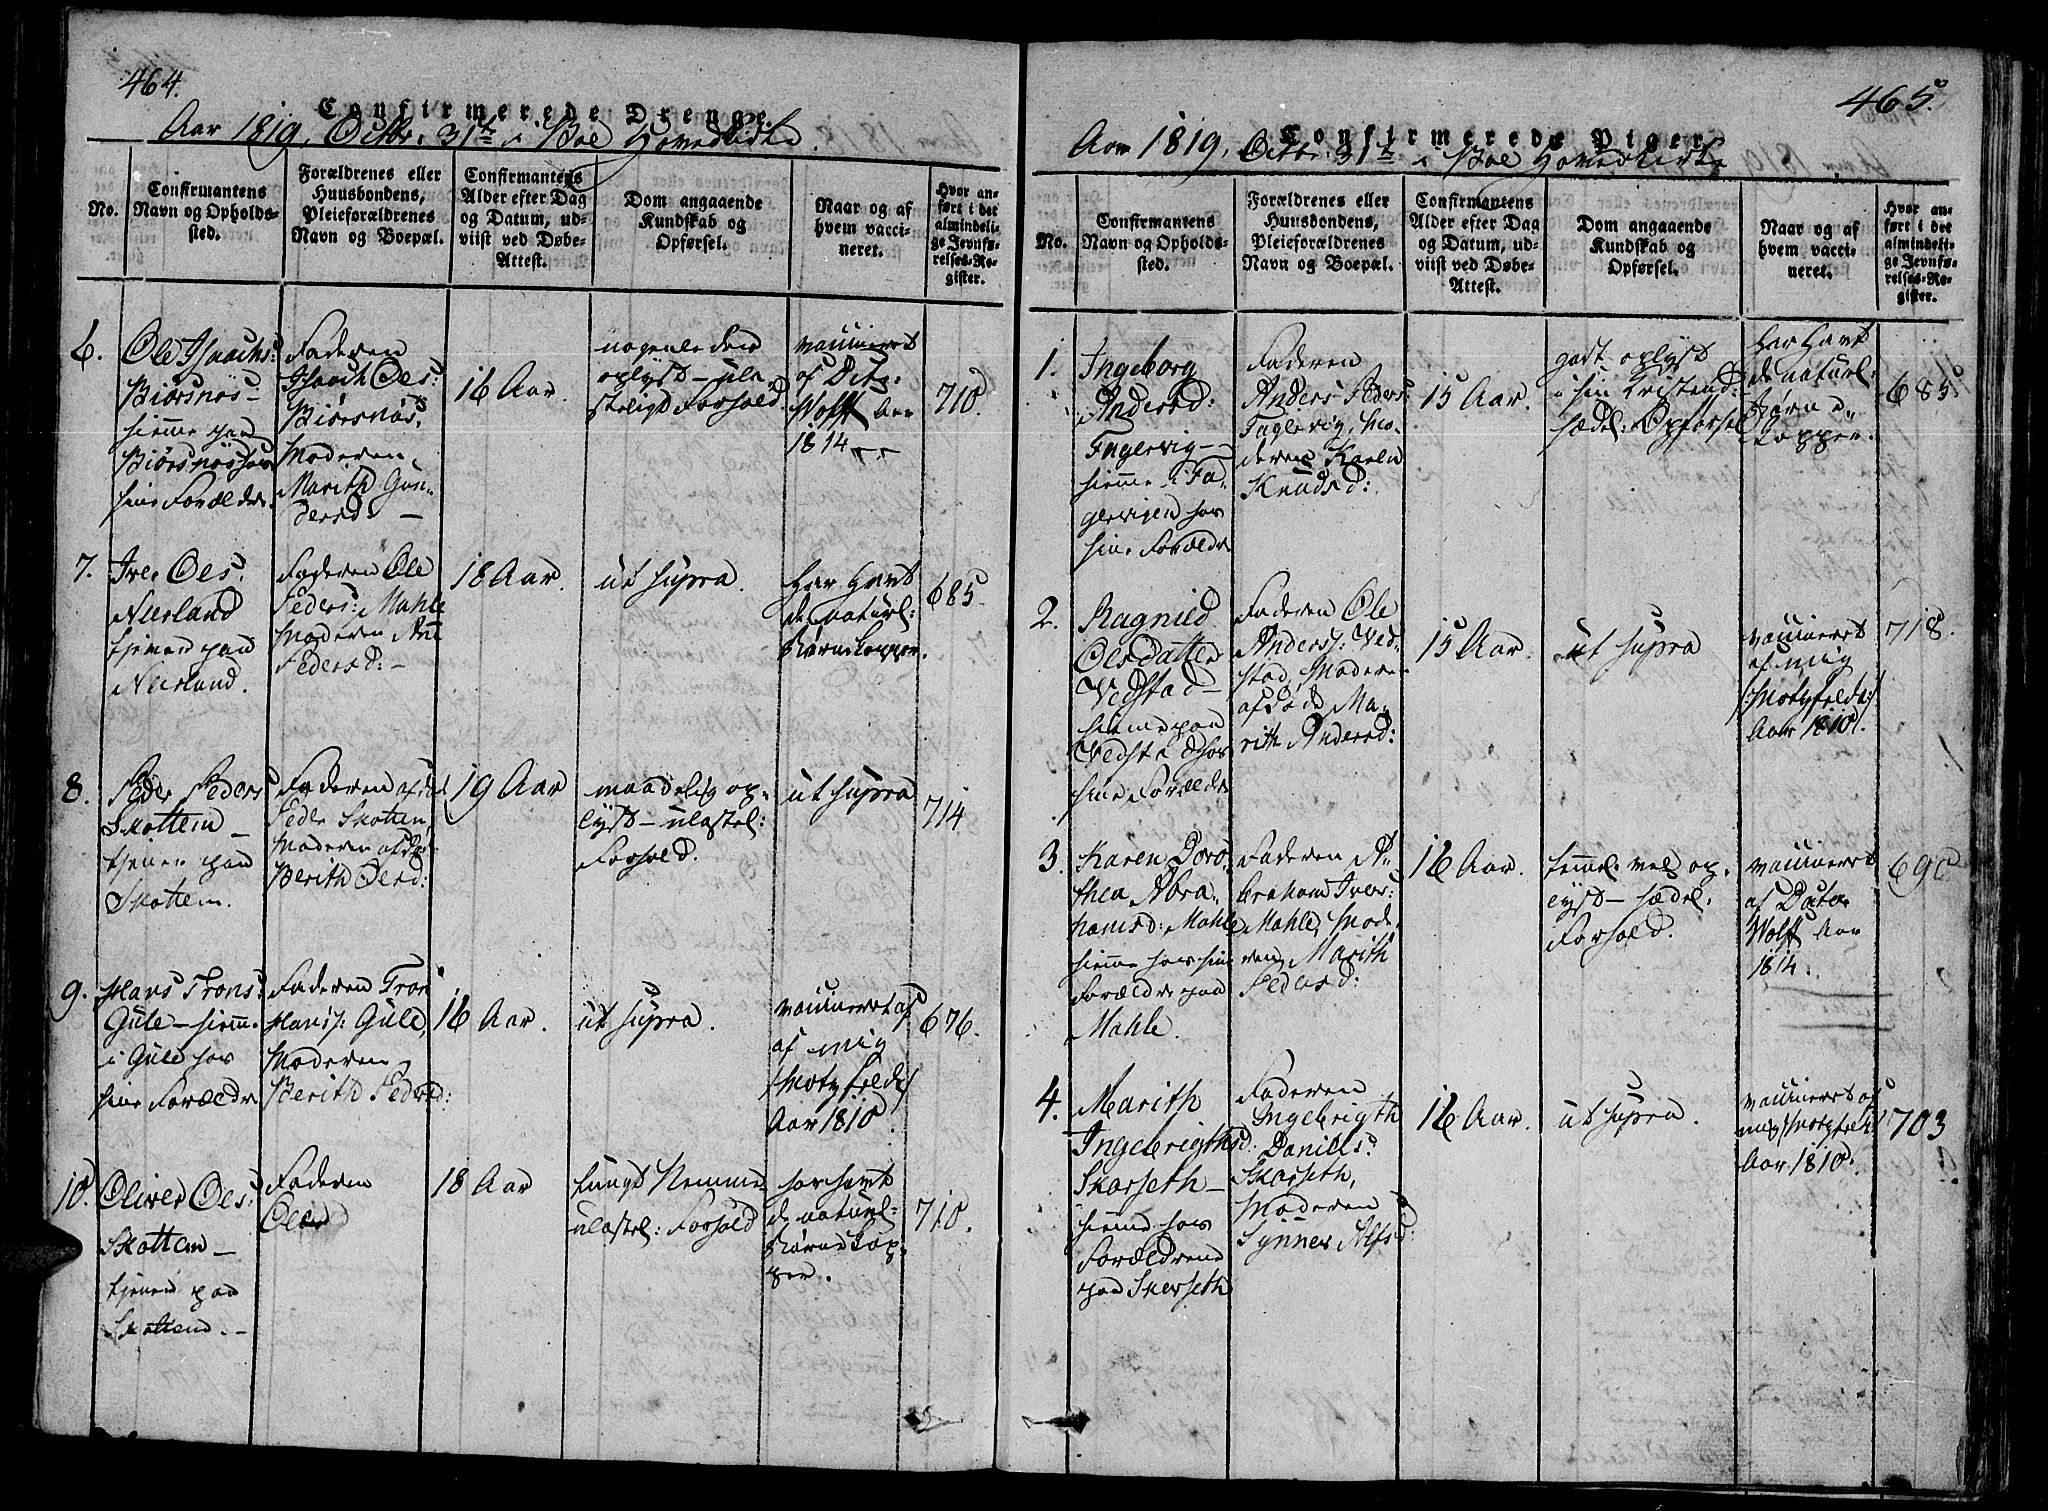 464.
Confirmerede Drenge.
Aar 1819, Octbr. 31te i Boe Hovedkirke.
No.
Confirmantens
Navn og Opholds-
sted.
Forældrenes eller
Huusbondens,
Pleieforældrenes
Navn og Boepæl.
Confirmantens
Alder efter Dag
og Datum, ud-
viist ved Døbe-
Attest.
Dom angaaende
Kundskab og
Opførsel.
Naar og af
hvem vacci-
neret.
Hvor an-
ført i det
almindeli-
ge Jevnfø-
relses-Re-
gister.
6.
Ole Isaachs:
Biörsnös-
hiemme paa
Biörsnös hos
sine Forældre.
Faderen
Isaach Oes:
Biörsnös,
Moderen
Marith Gun-
dersd. -
16 Aar.
nogenlede
oplyst - ula
steligt Forhold.
vaccineret
af
Wolff Aar
1814
710.
7.
Iver Oes.
Nerland
tjener paa
Nerland.
Faderen Ole
Peders: Mahle
Moderen Ane
Pedersd: -
18 Aar.
ut supra.
Har Havt
de naturl:
Börnekopper.
685.
8.
Peder Peders
Skottem -
tjener paa
Skottem.
Faderen afdöd
Peder Skottem,
Moderen afdö:
Berith Oesd:
19 Aar
maadelig op-
lyst - ulastel:
Forhold.
ut supra
714
9.
Hans Trons:
Gule - hiem.
i Gule hos
sine Forældre
Faderen Tron
Hanss: Gule,
Moderen
Berith Pedersd:
16 Aar.
ut supra.
vaccineret af
af mig
/Motzfeldt/
Aar 1810.
676.
10.
Oliver Oes:
Skottem -
tjener paa
Skottem. -
Faderen
Ole
18 Aar
tungt Nemme
ulastel: Forhold
har havt
de naturl-
Börnekop-
per.
710.
465.
Confirmerede Piger.
Aar 1819, Octbr. 31te i Boe Hovedkirke
No.
Confirmantens
Navn og Opholds-
sted.
Forældrenes eller
Huusbondens,
Pleieforældrenes
Navn og Boepæl.
Confirmantens
Alder efter Dag
og Datum, ud-
viist ved Døbe-
Attest.
Dom angaaende
Kundskab og
Opførsel.
Naar og af
hvem vacci-
neret.
Hvor an-
ført i det
almindeli-
ge Jevnfø-
relses-Re-
gister.
1.
Ingeborg
Andersd:
Fagervig -
hiemme i Fa-
gervigen hos
sine Forældre
Faderen
Anders Peders
Faglevig, Mo-
deren Karen
Knudsd:
15 Aar.
godt oplyst
i sin Kristend:
sædel: Opförsel
Har Havt
de naturl:
Börne-
kopper.
685.
2.
Ragnild
Olesdatter
Vedstad -
hiemme paa
Vedstad hos
sine Forældre
Faderen Ole
Anderss: Ved-
stad, Moderen
afdöde Ma-
rith Andersd:
15 Aar.
ut supra
vaccineret
af mig
/Motzfeldt/
Aar 1810.
718.
3.
Karen Doro-
thea Abra-
hamsd: Mahle
hiemme hos sine
Forældre paa
Mahle.
Faderen A-
braham Ivers:
Mahle, Mode-
ren Marith
Pedersd:
16 Aar.
temmel. vel op-
lyst - sædel.
Forhold.
vaccineret
af Doctor
Wolff Aar
1814.
690
4.
Marith
Ingebrigthsd:
Skarseth -
hiemme hos
Forældrene
paa Skarseth
Faderen
Ingebrigth
Daniels:
Skarseth,
Moderen
Synnev Alfsd:
16 Aar.
ut supra.
vaccineret af
mig /Motzfeldt/
Aar 1810.
703